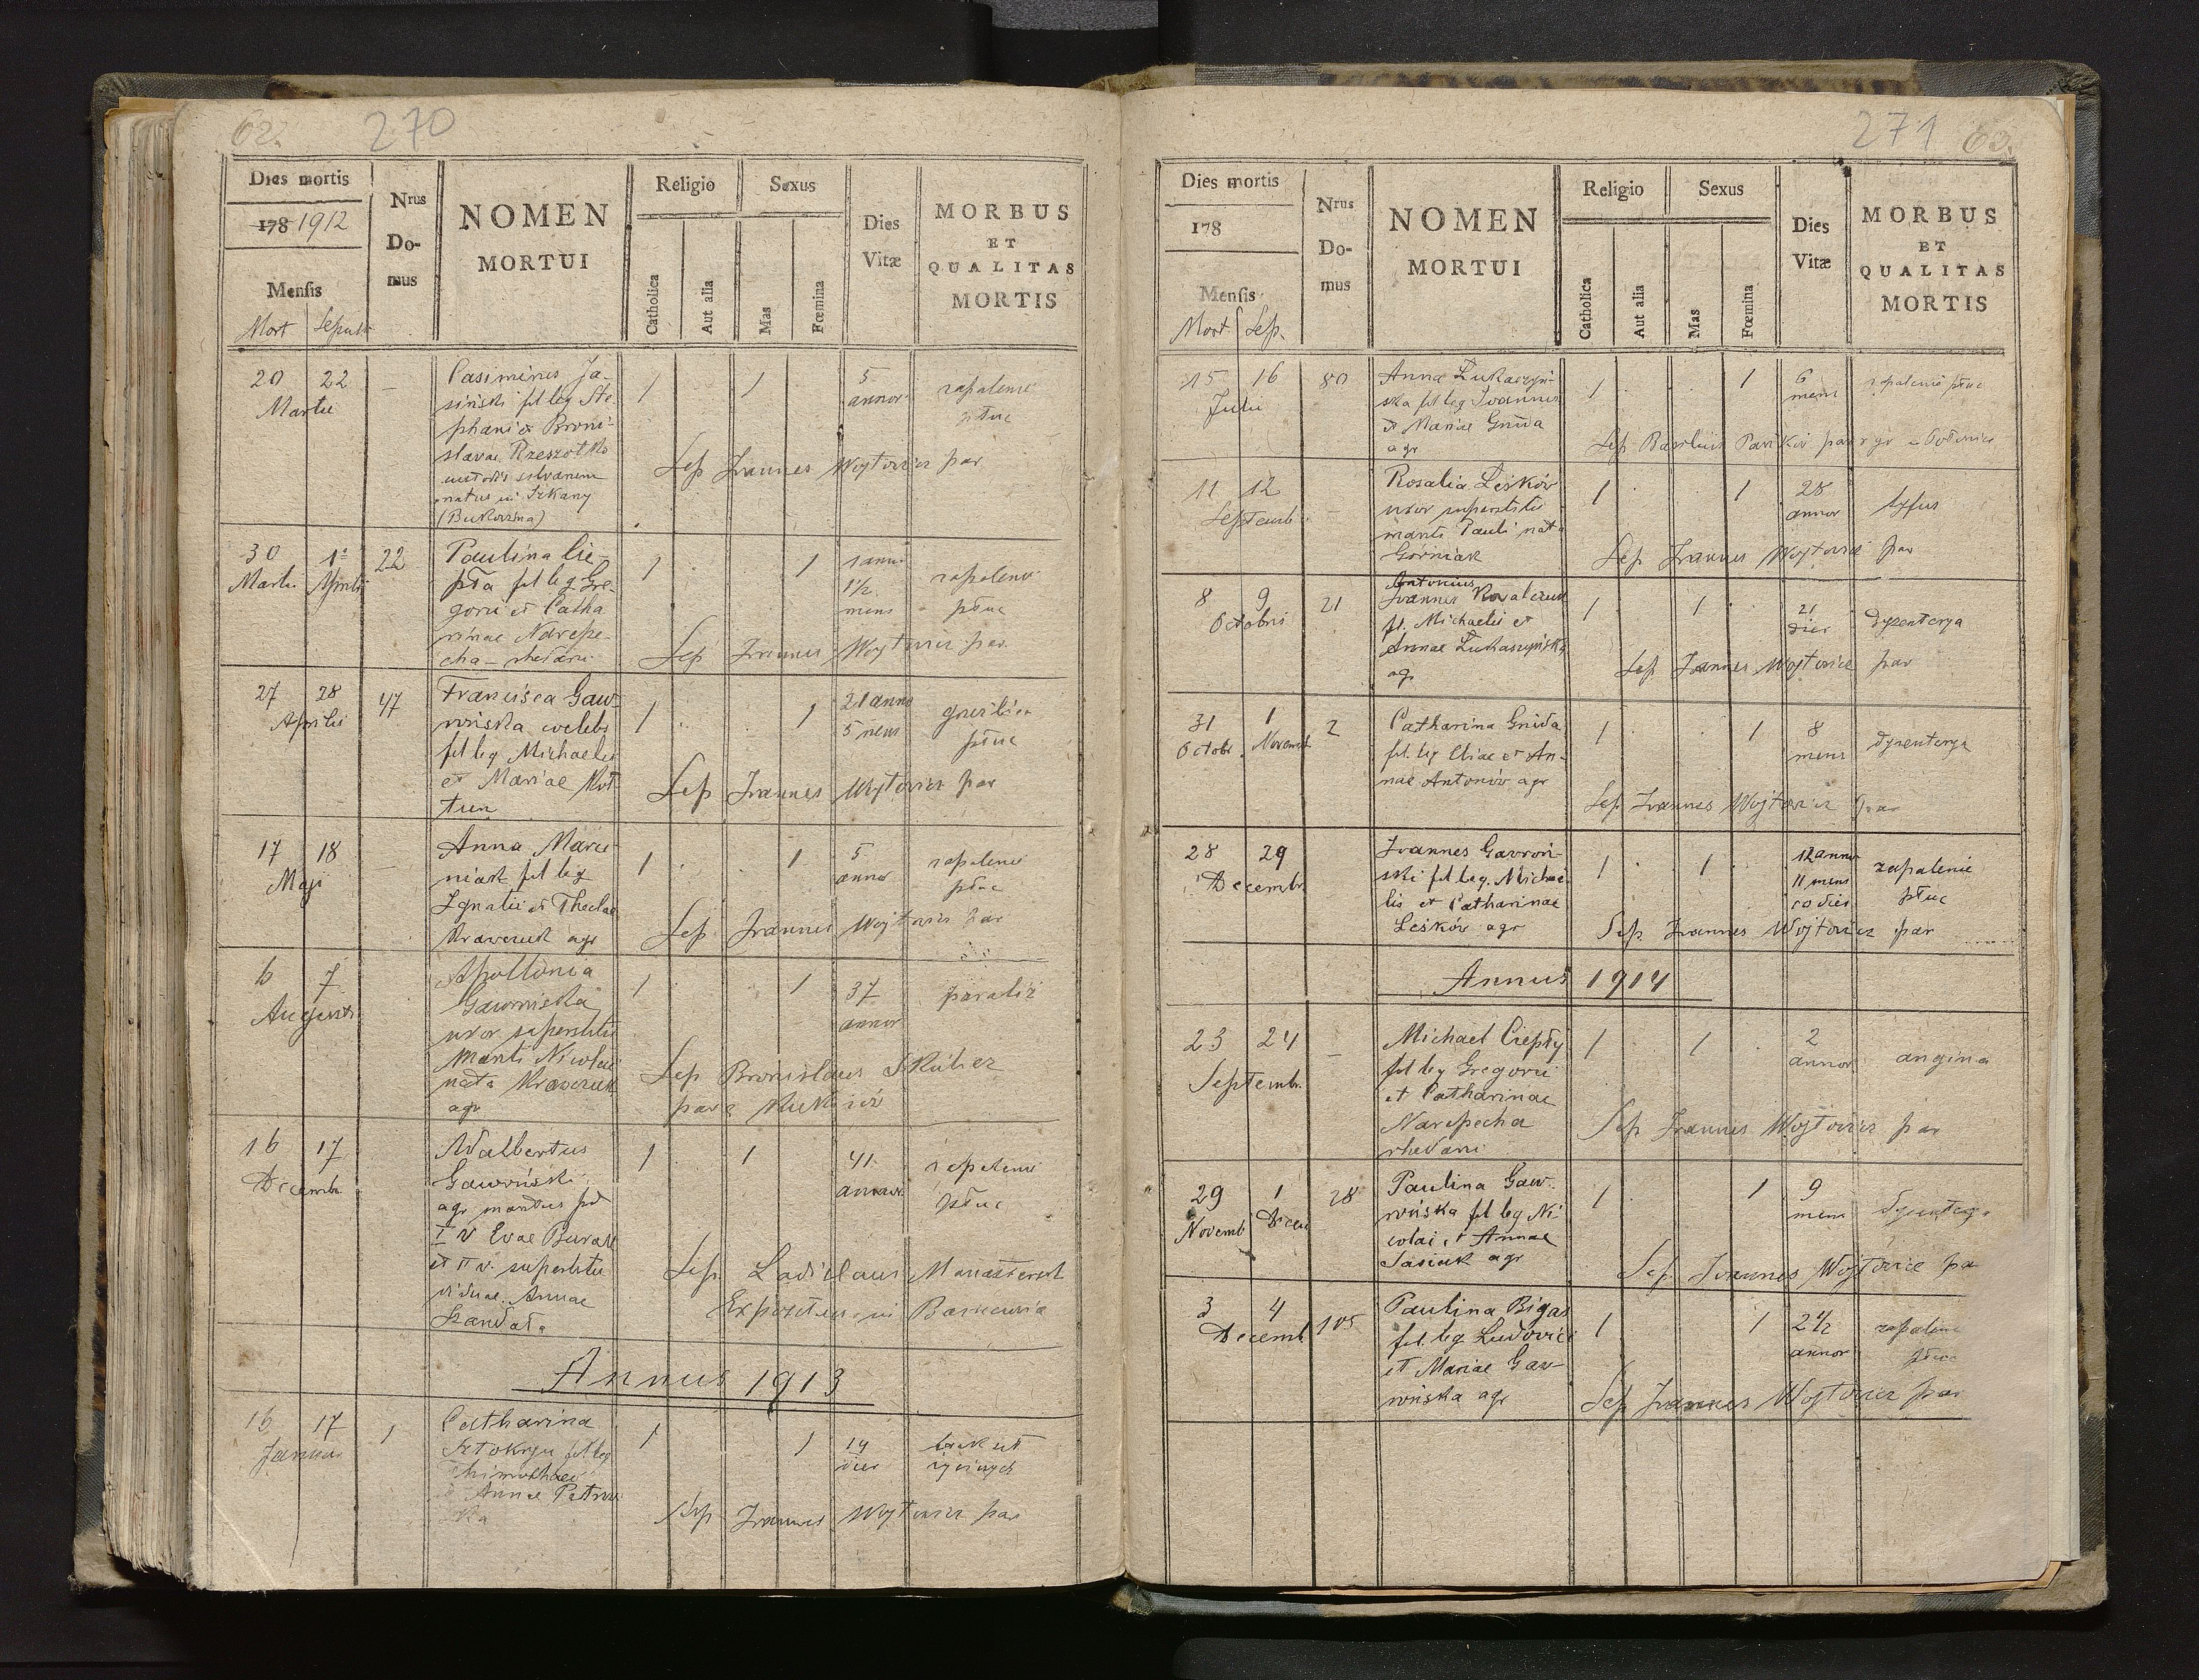 62. 270
Dies mortis
178 1912
Mensis
Mort Sepult
Nrus
Do-
mus
NOMEN
MORTUI
Religio
Catholica
Aut alia
Sexus
Mas
Fœmina
Dies
Vitæ
MORBUS
ET
QUALITAS
MORTIS
20 22 — Casimirus Ja- 1 1 5 zapalenie
Martii siński fil leg Ste- annor płuc
phani et Broni-
slavae Rzeszotko
Sep Joannes Wojtowicz par
natus in
(Bukovina)
30 1a 22 Paulina Cie- 1 1 1 anni
Martii Aprilis pła fil leg Gre- 1½ zapalenie
gorii et Catha mens płuc
rinae Narepe-
cha — rhedarii Sep Joannes Wojtowicz par
27 28 47 Francisca Gaw- 1 1 21 anno gruźlica
Aprilis rońska coelebs 5 mens płuc
fil leg Michaelis
et Mariae Kot Sep Joannes Wojtowicz par
17 18 — Anna Marci- 1 1 5 zapalenie
Maji niak fil leg annor płuc
Ignatii et Theclae
Krawczuk agr Sep Joannes Wojtowicz par
6 7 Apollonia 1 1 37 paraliż
Augusti Gawrońska annor
uxor superstitis
mariti Nicolai Sep Bronislaus
nata Krawczuk
agr
16 17 Adalbertus 1 1 41 zapalenie
Decemb Gawroński annor płuc
agr maritus
I v Evae Burak
et II v. superstitis Sep Ladislaus
viduae Annae Expositus in
Annus 1913
16 17 1 Catharina 1 1 14 brak sił
Januar fil leg dier życiowych
Annae
Sep Joannes Wojtowicz par
271 63.
Dies mortis
178
Mensis
Mort. Sep.
Nrus
Do-
mus
NOMEN
MORTUI
Religio
Catholica
Aut alia
Sexus
Mas
Fœmina
Dies
Vitæ
MORBUS
ET
QUALITAS
MORTIS
15 16 80 Anna Łukaszyń- 1 1 6 zapalenie płuc
Julii ska fil leg Joannis mens
et Mariae Gnida
agr Sep Basilius par r gr
11 12 — Rosalia Leśków 1 1 28 tyfus
Septemb uxor superstitis annor
mariti Pauli nata
Gorniak Sep Joannes Wojtowicz par
Antonius
8 9 21 Joannes Kowalczuk 1 1 21 dyzenterya
Octobris fil. Michaelis et dier
Annae Łukaszyńska
agr Sep Joannes Wojtowicz par
31 1 2 Catharina Gnida 1 1 8 dyzenterya
Octobr Novemb fil. leg Eliae et An- mens
nae Antonów agr
Sep Joannes Wojtowicz par
28 29 Joannes Gawroń- 1 1 12 anno zapalenie
Decembr ski fil leg. Michae- 11 mens płuc
lis et Catharinae 10 dies
Leśków agr Sep Joannes Wojtowicz par
Annus 1914
23 24 — Michael Ciepły 1 1 2 angina
Septembr. fil leg Gregorii annor
et Catharinae
Narepecha Sep Joannes Wojtowicz par
rhedarii
29 1 28 Paulina Gaw- 1 1 9
Novemb Decem rońska fil leg Ni- mens
colai et Annae
Sasiuk agr Sep Joannes Wojtowicz pa
3 4 105 Paulina Bigas 1 1 2½ zapalenie
Decemb fil leg Ludovici annor płuc
et Mariae Gaw-
rońska agr Sep Joannes Wojtowicz par